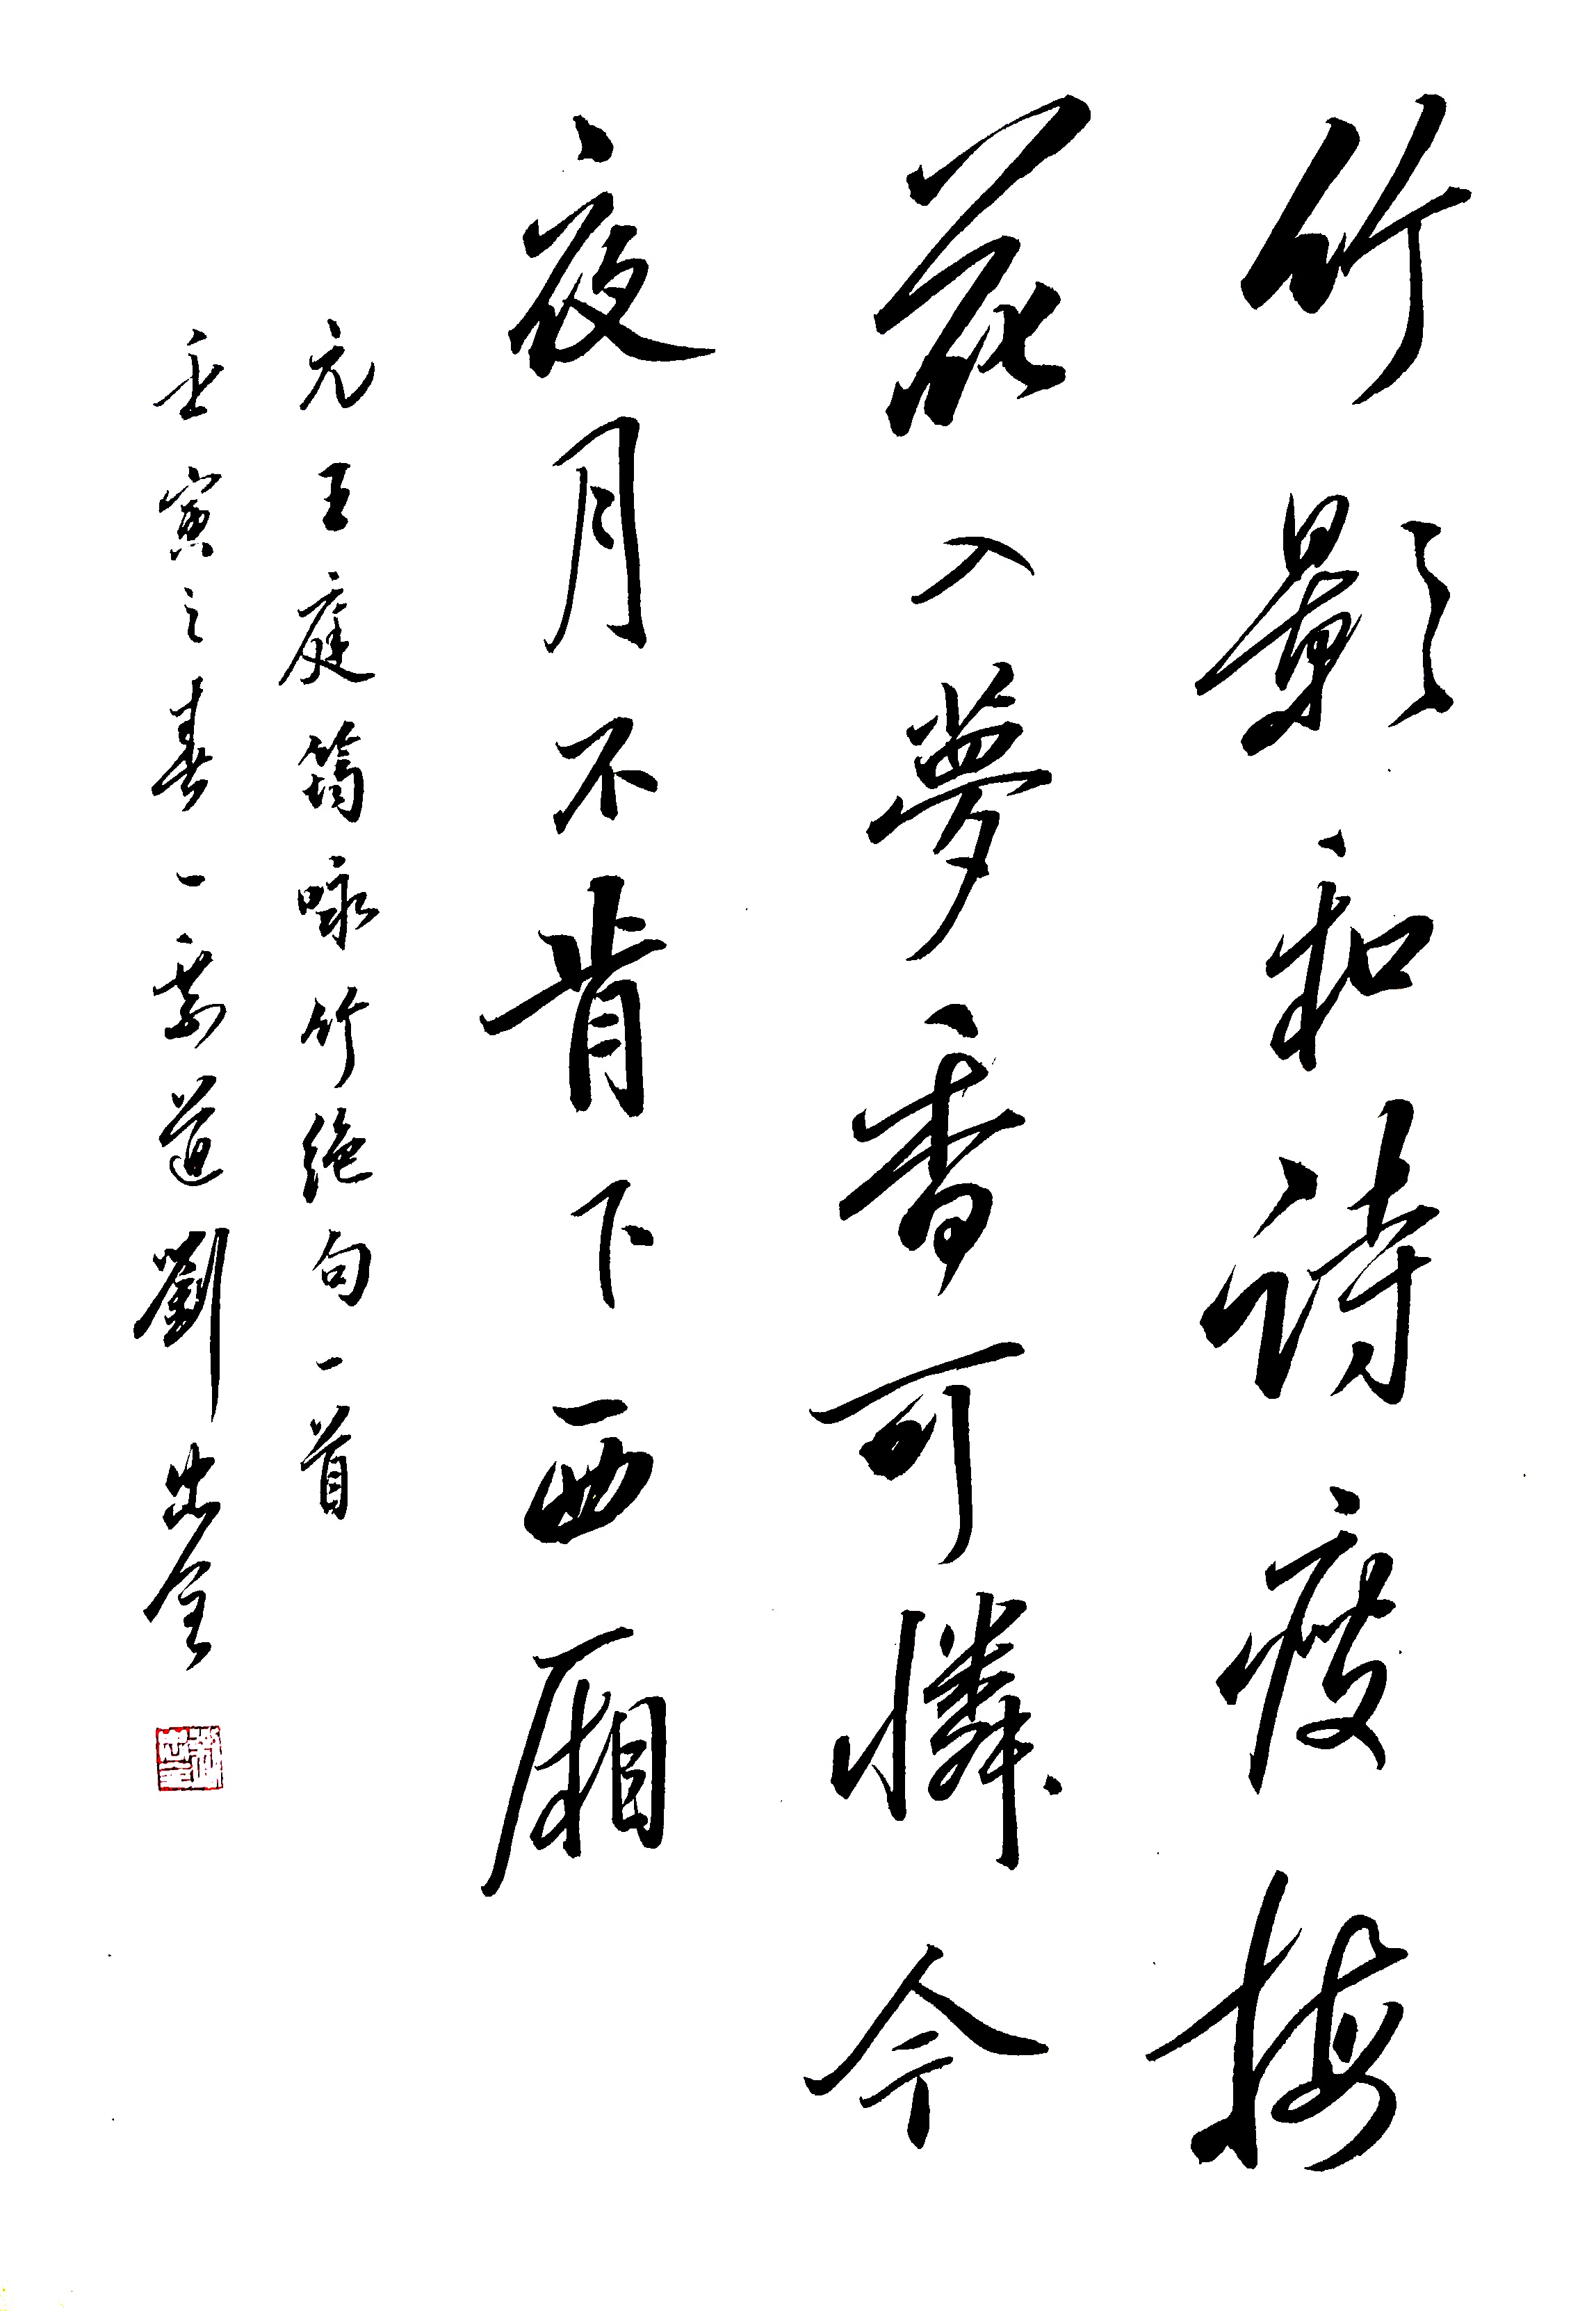 竹影和詩瘦梅
花入夢香可憐今
夜月不肯下西廂
元王庭筠咏竹绝句一首
壬寅之春一豪道劉出金